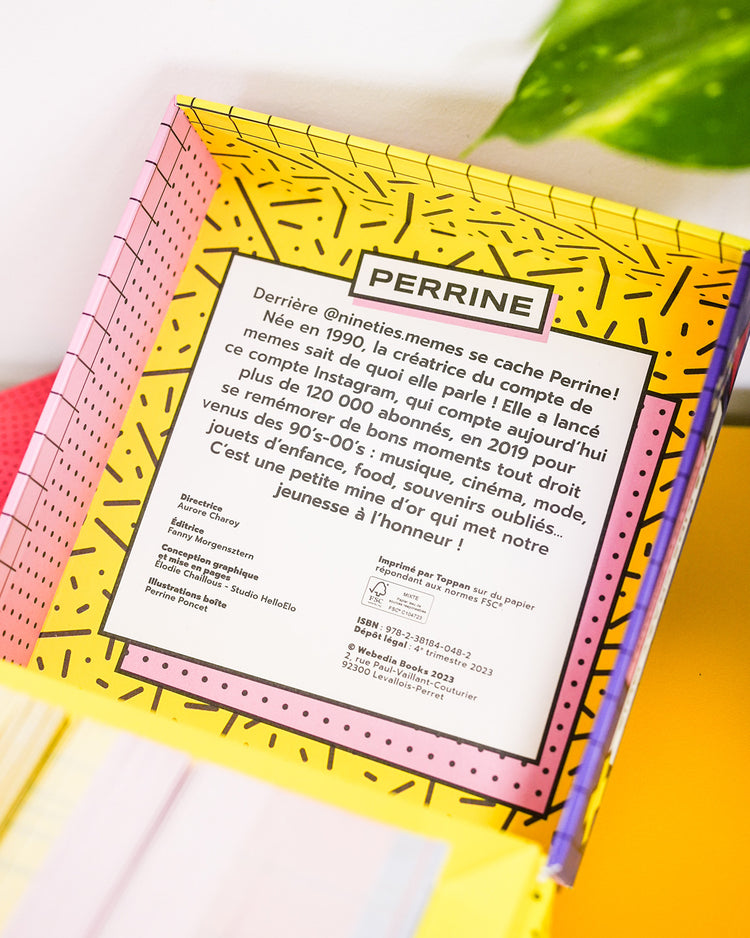 PERRINE
Derrière @nineties.memes se cache Perrine !
Née en 1990, la créatrice du compte de
memes sait de quoi elle parle ! Elle a lancé
ce compte Instagram, qui compte aujourd'hui
plus de 120 000 abonnés, en 2019 pour
se remémorer de bons moments tout droit
venus des 90's-00's : musique, cinéma, mode,
jouets d'enfance, food, souvenirs oubliés...
C'est une petite mine d'or qui met notre
jeunesse à l'honneur !
Directrice
Aurore Charoy
Éditrice
Fanny Morgensztern
Conception graphique
et mise en pages
Élodie Chaillous - Studio HelloElo
Illustrations boîte
Perrine Poncet
Imprimé par Toppan sur du papier
répondant aux normes FSC®
FSC
MIXTE
FSC® C104723
ISBN : 978-2-38184-048-2
Dépôt légal : 4e trimestre 2023
© Webedia Books 2023
2, rue Paul-Vaillant-Couturier
92300 Levallois-Perret